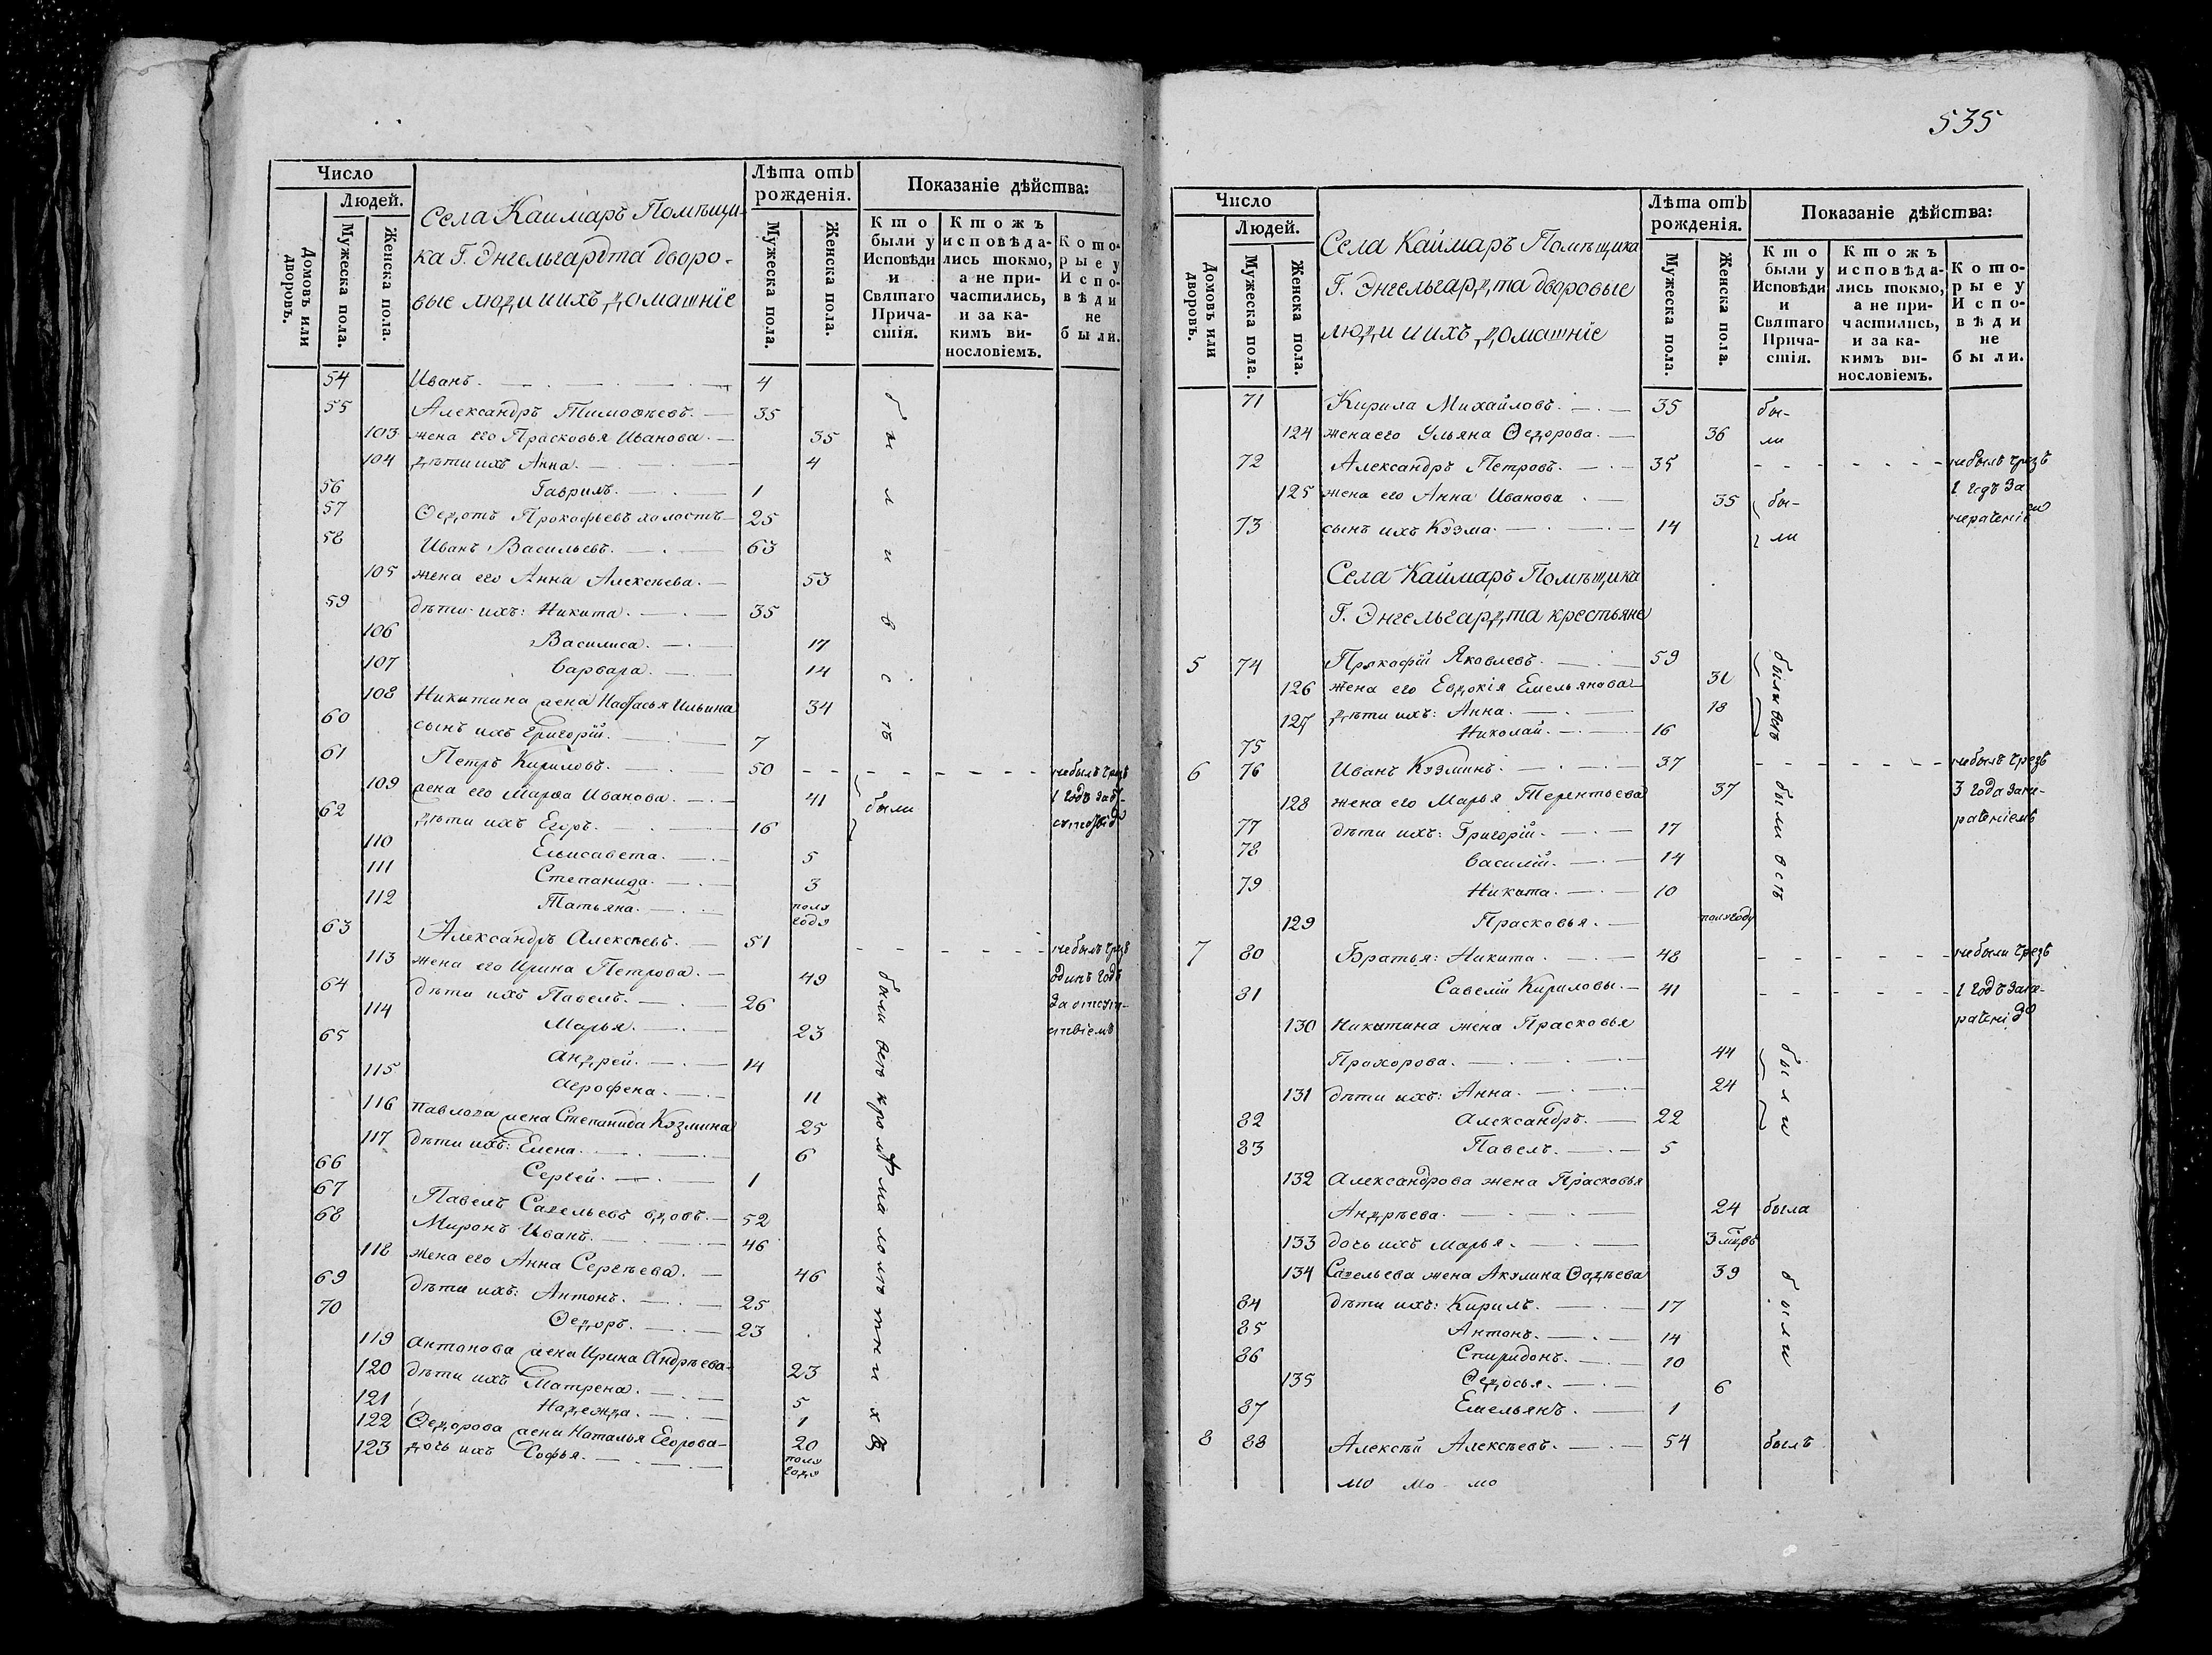 Число
Людей.
Домовъ или дворовъ.
Мужеска пола.
Женска пола.
Села Каимаръ Помѣщи-
ка Г. Энгельгардта дворо-
вые люди и ихъ домашніе
Лѣта отъ рожденія.
Мужеска пола.
Женска пола.
Показаніе дѣйства:
Кто были у Исповѣди и Святаго Причастія.
Ктожъ исповѣдались токмо, а не причастились, и за какимъ винословіемъ.
Которые у Исповѣди не были.
54 Иванъ. 4
55 Александръ Тимоѳеевъ. 35
103 жена его Прасковья Иванова. 35
104 дѣти ихъ Анна. 4
56 Гаврилъ. 1
57 Ѳедотъ Прокофьевъ холостъ 25
58 Иванъ Васильевъ. 63
105 жена его Анна Алексѣева. 53
59 дѣти ихъ: Никита. 35
106 Василиса. 17
107 Варвара. 14
108 Никитина жена Настасья Ильина 34
60 сынъ ихъ Григорій. 7
были всѣ
61 Петръ Кириловъ. 50 небылъ чрезъ
109 жена его Марѳа Иванова. 41 были 1 годъ за
62 дѣти ихъ Егоръ. 16
110 Елисавета. 5
111 Степанида. 3
112 Татьяна. полу года
63 Александръ Алексѣевъ. 51 небылъ чрезъ
113 жена его Ирина Петрова. 49 одинъ годъ
64 дѣти ихъ Павелъ. 26 За отсут-
114 Марья. 23 ствіемъ
65 Андрей. 14
115 Агрофена. 11
116 Павлова жена Степанида Кузмина 25
117 дѣти ихъ: Елена. 6
66 Сергей. 1
67 Павелъ Савельевъ вдовъ. 52
68 Миронъ Иванъ. 46
118 жена его Анна Сергѣева. 46
69 дѣти ихъ: Антонъ. 25
70 Ѳедоръ. 23
119 Антонова жена Ирина Андрѣева 23
120 дѣти ихъ Матрена. 5
121 Надежда. 1
122 Ѳедорова жена Наталья Егорова 20
123 дочь ихъ Софья. полу года
были всѣ кромѣ малолѣтнихъ
535
Число
Людей.
Домовъ или дворовъ.
Мужеска пола.
Женска пола.
Села Каймаръ Помѣщика
Г. Энгельгардта дворовые
люди и ихъ домашніе
Лѣта отъ рожденія.
Мужеска пола.
Женска пола.
Показаніе дѣйства:
Кто были у Исповѣди и Святаго Причастія.
Ктожъ исповѣдались токмо, а не причастились, и за какимъ винословіемъ.
Которые у Исповѣди не были.
71 Кирила Михайловъ. 35 бы-
124 жена его Ульяна Ѳедорова. 36 ли
72 Александръ Петровъ. 35 небылъ чрезъ
125 жена его Анна Иванова. 35 бы- 1 годъ За
73 сынъ ихъ Козма. 14 ли
Села Каймаръ Помѣщика
Г. Энгельгардта крестьяне
5 74 Прокофій Яковлевъ. 59
126 жена его Евдокія Емельянова
127 дѣти ихъ: Анна. 18
75 Николай. 16
были всѣ
6 76 Иванъ Козминъ. 37 небылъ чрезъ
128 жена его Марья Терентьева 37 3 года зане-
77 дѣти ихъ: Григорій. 17 раченіемъ
78 Василій. 14
79 Никита. 10
129 Прасковья. полугоду
были всѣ
7 80 Братья: Никита. 48 небыли чрезъ
81 Савелій Кириловы. 41 1 годъ зане-
130 Никитина жена Прасковья
Прохорова. 44
131 дѣти ихъ: Анна. 24
82 Александръ. 22
83 Павелъ. 5
были
132 Александрова жена Прасковья
Андрѣева. 24 была
133 дочь ихъ Марья. 3
134 Савельева жена Акулина Ѳадѣева 39
84 дѣти ихъ: Кирилъ. 17
85 Антонъ. 14
86 Спиридонъ. 10
135 Ѳедосья. 6
87 Емельянъ. 1
были
8 88 Алексѣй Алексѣевъ. 54 былъ